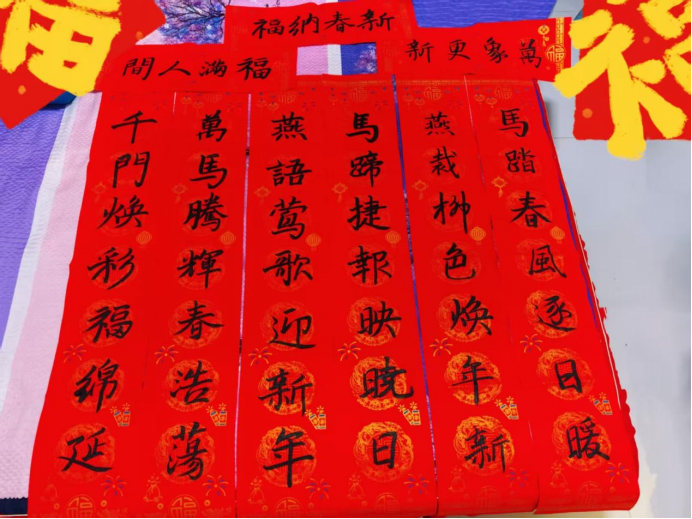 新春纳福
萬象更新
福滿人間
馬踏春風逐日暖
燕裁柳色焕年新
馬蹄捷報映曉日
燕語莺歌迎新年
萬馬騰輝春浩蕩
千門焕彩福绵延
福
福